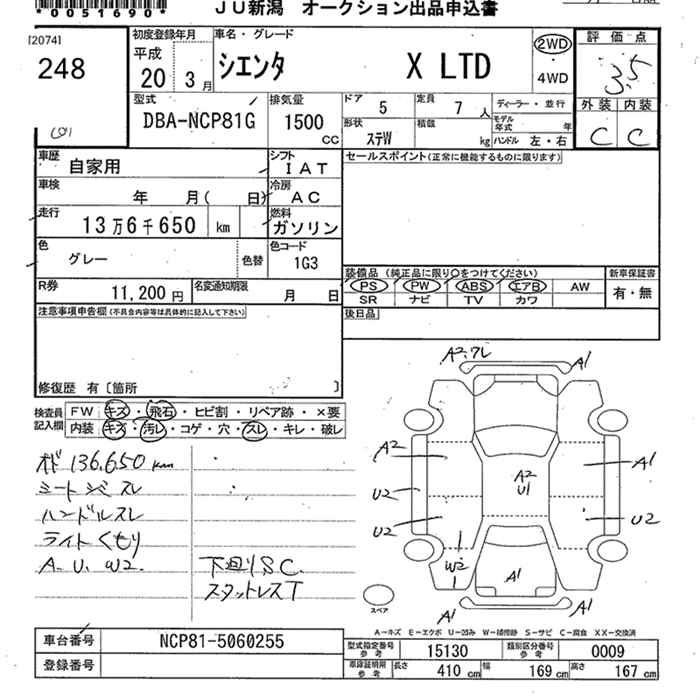 *0051690*
JU新潟 オークション出品申込書
[2074]
248
初度登録年月
平成
20 3月
車名・グレード
シエンタ X LTD
2WD
4WD
評価点
3.5
外装 内装
C C
型式
DBA-NCP81G
排気量
1500
cc
ドア 5
定員 7 人
ディーラー・並行
形状 ステW
積載 kg
モデル年式 年
ハンドル 左・右
車歴 自家用
シフト IAT
セールスポイント(正常に機能するものに限ります)
車検 年 月( 日)
冷房 AC
走行 13万6千650 km
燃料 ガソリン
色 グレー 色替
色コード 1G3
装備品(純正品に限り○をつけてください)
新車保証書
PS PW ABS エアB AW
有・無
SR ナビ TV カワ
R券 11,200円
名変通知期限 月 日
後日品
注意事項申告欄(不具合内容等は具体的に記入して下さい)
修復歴 有 [箇所 ]
検査員記入欄
FW キズ・飛石・ヒビ割・リペア跡・×要
内装 キズ・汚レ・コゲ・穴・スレ・キレ・破レ
オド 136,650km
シートシミスレ
ハンドルスレ
ライトくもり
A. U. W2.
下回りS.C.
スタットレスT
A2.ワレ
A1
A2
A1
A2
U1
U2
U2
U2
W2
A1
A1
A1
スペア
A-キズ E-エクボ U-凹み W-補修跡 S-サビ C-腐食 XX-交換済
車台番号 NCP81-5060255
登録番号
型式指定番号 参考 15130
類別区分番号 参考 0009
車庫証明用 参考 長さ 410 cm 幅 169 cm 高さ 167 cm